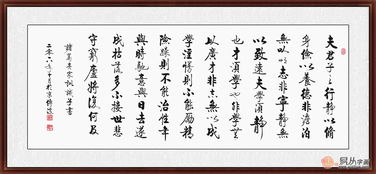 夫君子之行靜以脩
身儉以養德非澹泊
無以明志非寧靜無
以致遠夫學須靜
也才須學也非學無
以廣才非志無以成
學淫慢則不能勵精
險躁則不能治性年
與時馳意與日去遂
成枯落多不接世悲
守窮廬將復何及
諸葛亮家訓誡子書
易从字画